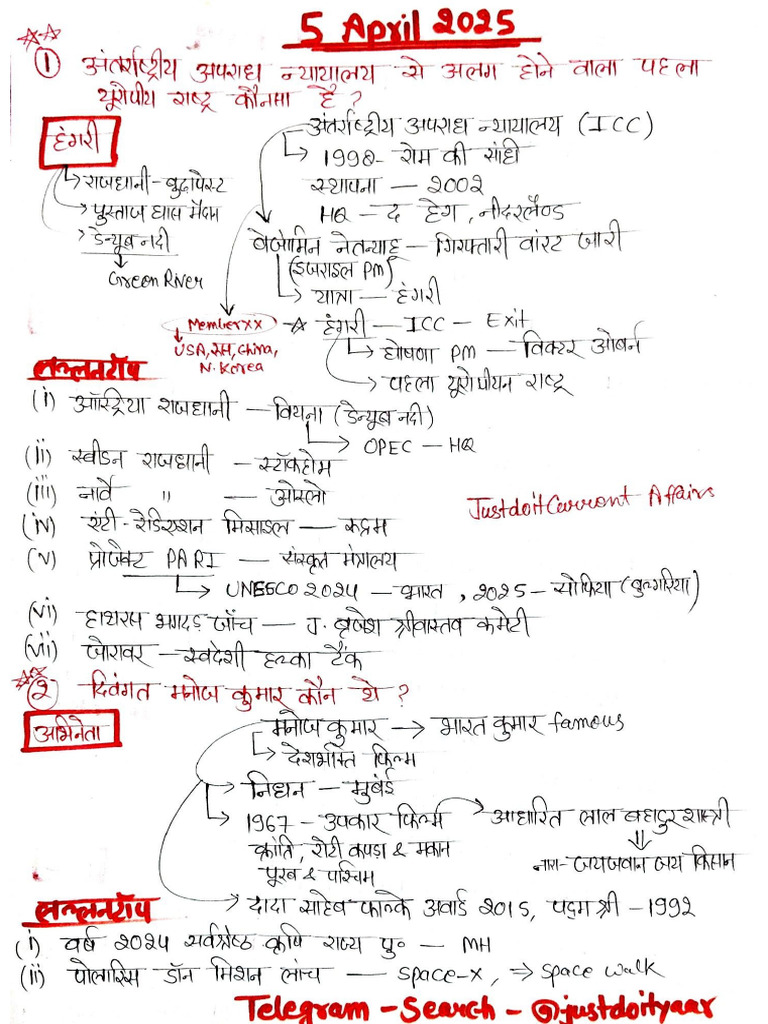 5 April 2025
① अंतर्राष्ट्रीय अपराध न्यायालय से अलग होने वाला पहला
यूरोपीय राष्ट्र कौनसा है ?
हंगरी
राजधानी - बुडापेस्ट
पुस्ताज घास मैदान
डेन्यूब नदी
Green River
अंतर्राष्ट्रीय अपराध न्यायालय (ICC)
1998 - रोम की संधी
स्थापना — 2002
HQ — द हेग, नीदरलैण्ड
बेंजामिन नेतन्याहू — गिरफ्तारी वारंट जारी
(इजराइल PM)
यात्रा — हंगरी
Member xx
USA, रूस, China,
N. Korea
हंगरी — ICC — Exit
घोषणा PM — विक्टर ओर्बन
पहला यूरोपीयन राष्ट्र
लल्लनटॉप
(i) ऑस्ट्रिया राजधानी — वियना (डेन्यूब नदी)
OPEC — HQ
(ii) स्वीडन राजधानी — स्टॉकहोम
(iii) नार्वे " — ओस्लो
Justdoit Current Affairs
(iv) एंटी - रेडिएशन मिसाइल — रुद्रम
(v) प्रोजेक्ट PARI — संस्कृत मंत्रालय
UNESCO 2024 — भारत, 2025 - सोफिया (बुल्गारिया)
(vi) हाथरस भगदड़ जाँच — J. बृजेश श्रीवास्तव कमेटी
(vii) जोरावर — स्वदेशी हल्का टैंक
② दिवंगत मनोज कुमार कौन थे ?
अभिनेता
मनोज कुमार → भारत कुमार famous
देशभक्ति फिल्म
निधन — मुंबई
1967 - उपकार फिल्म
आधारित लाल बहादुर शास्त्री
नारा - जय जवान जय किसान
क्रांति, रोटी कपड़ा & मकान
पूरब & पश्चिम
दादा साहेब फाल्के अवार्ड 2015, पद्मश्री - 1992
लल्लनटॉप
(i) वर्ष 2024 सर्वश्रेष्ठ कृषि राज्य पु० — MH
(ii) पोलारिस डॉन मिशन लांच — Space-X, ⇒ Space walk
Telegram - Search - @justdoityaar